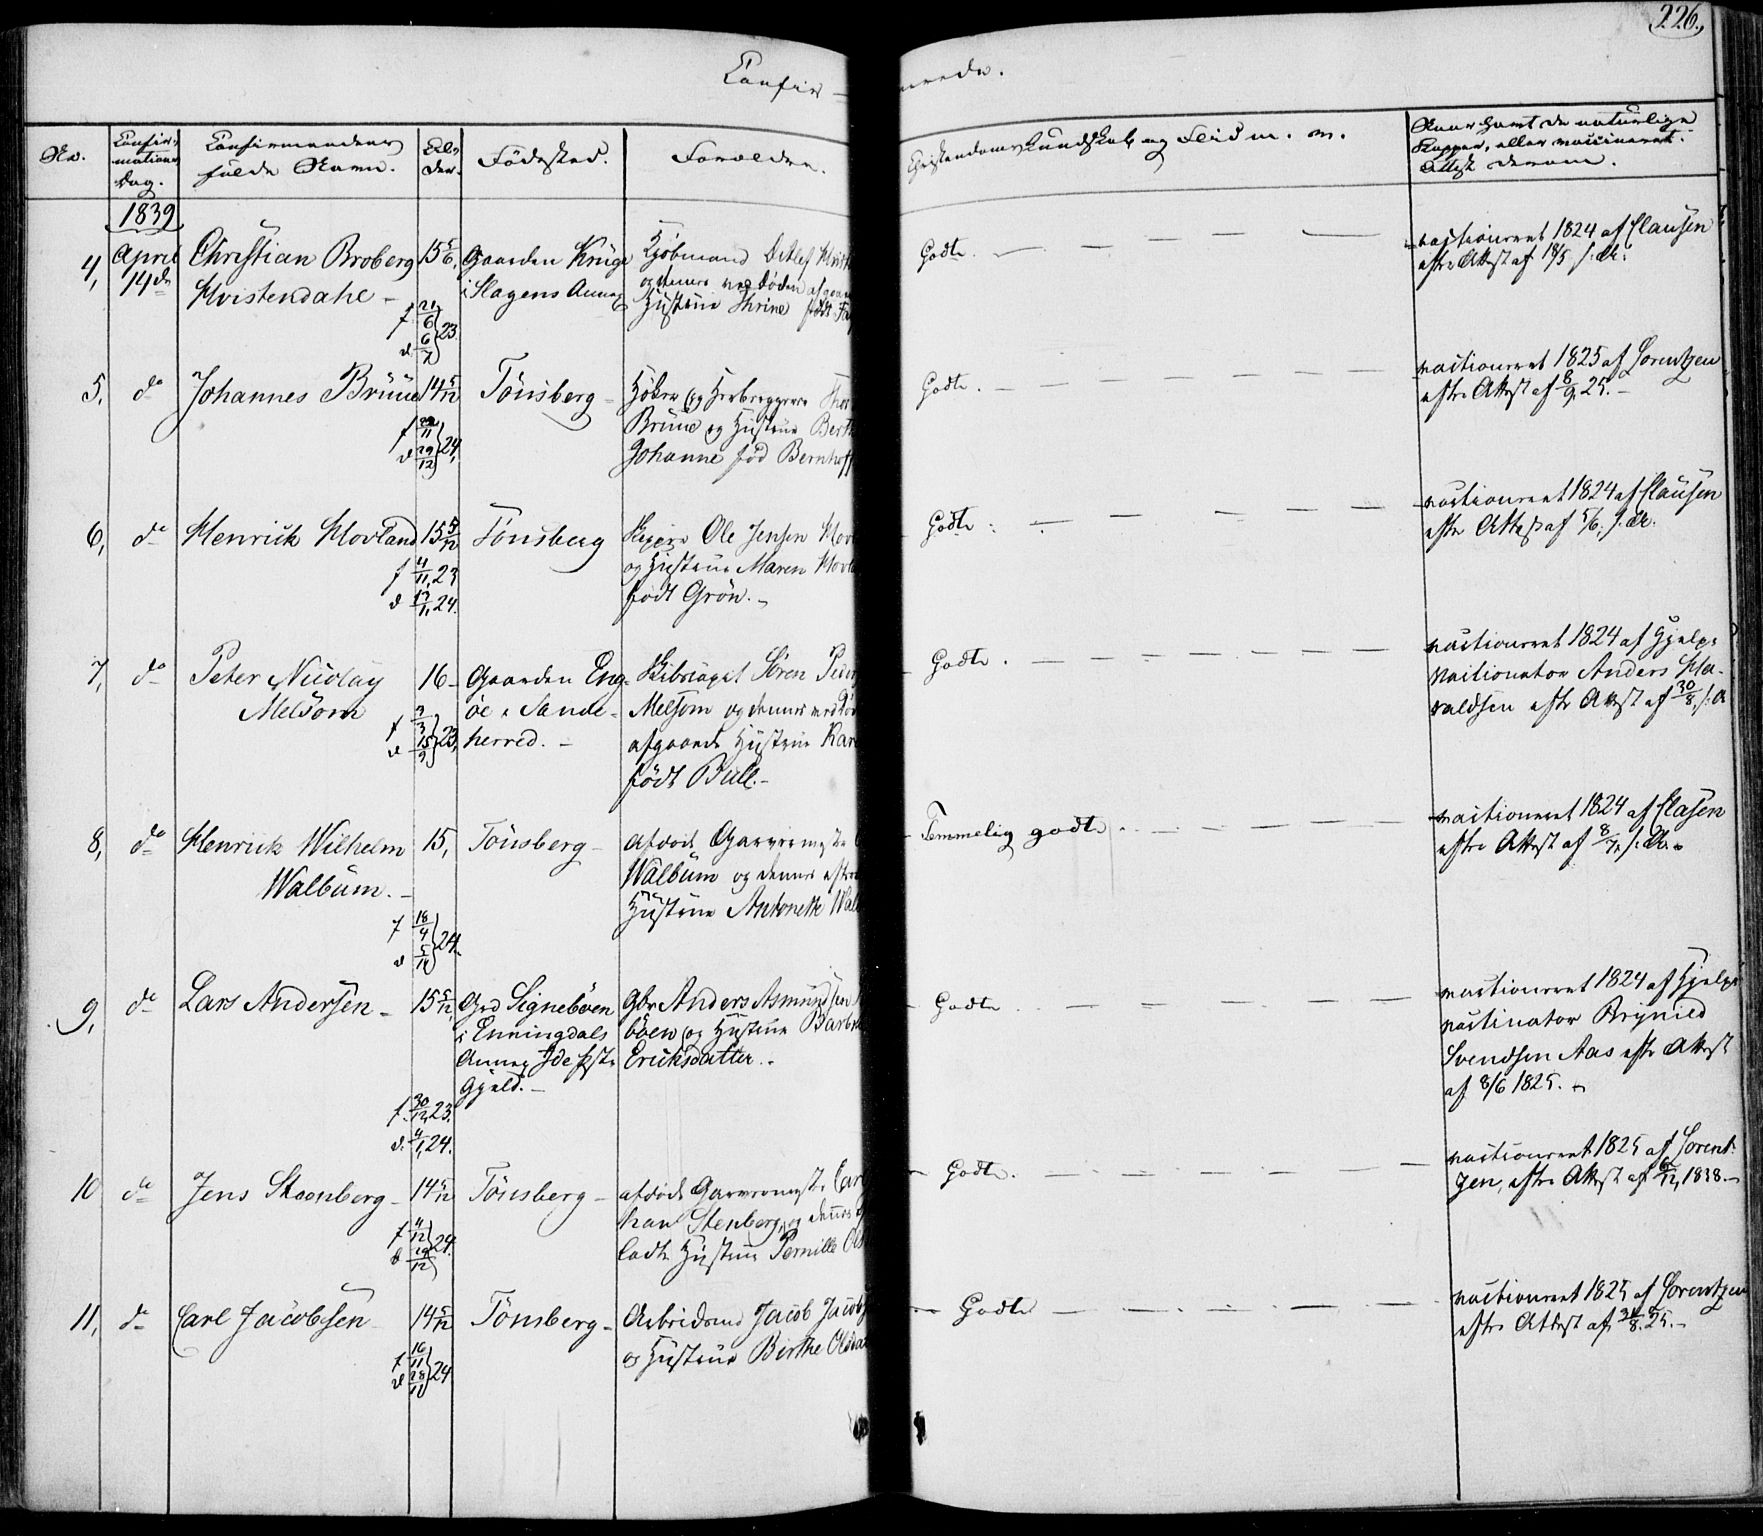 226.
Confir-
merede.
No.
Confir-
mations
Dag.
Confirmandens
fulde Navn.
Al-
der.
Födested.
Forældre.
Christendoms Kundskab og Flid m. m.
Naar havt de naturlige
Kopper, eller vaccineret.
Attest derom.
1839
4, April 14de
Christian Broberg
Hvistendahl -
15 5/6.
f 21/6
d. 6/7 } 23
Gaarden Krüge
i Slagens Annex
Kjöbmand Detlef Hvist
og dennes ved Döden afgaae
Hustrue Thrine födt Fa
Godt.
vaccineret 1824 af Clausen
efter Attest af 18/5 s. A.
5, do
Johannes Brüne
14 5/12
f 22/11
d 29/12 } 24,
Tönsberg -
Höker og Herbergerer Thor
Brüne og Hustrue Berth
Johanne föd Bernhoff
Godt.
vaccineret 1825 af Lorentzen
efter Attest af 8/9 25. -
6, do
Henrick Hovland
15 5/12
f 4/11, 23
d 17/1, 24.
Tönsberg
Ole Jensen Hov
og Hustrue Maren Hovla
födt Grön. -
Godt.
vaccineret 1824 af Clausen
efter Attest af 5/6. s. A.
7, do
Peter Nicolay
Melsom
16 -
f 3/3
d 15/9 } 23,
Gaarden Eng-
öe i Sande-
herred. -
Skibscapt Sören Peder
Melsom og dennes ved Död
afgaaede Hustrue Kar
födt Bull. -
Godt.
vaccineret 1824 af Hjelpe
vaccinator Anders Ha-
raldsen efter Attest af 30/8, s. A
8, do
Henrick Wilhelm
Walbum. -
15,
f 18/4
d 5/14 } 24.
Tönsberg -
afdöde Garvermester
Walbum og dennes efter
Hustrue Antonette Wal
Temmelig godt.
vaccineret 1824 af Clasen
efter Attest af 8/7, s. A. -
9, do
Lars Andersen -
15 5/12,
f. 30/12, 23.
d. 4/1, 24.
Grd Signeböen
i Enningdals
Annex Idde Præste
Gjeld. -
Gbr Anders Asmundsen
böen og Hustrue Barb
Ericksdatter. -
Godt
vaccineret 1824 af Hjelpe
vaccinator Brynild
Svendsen Aas efter Attest
af 8/6 1825. -
10 do
Jens Steenberg -
14 5/12
f 4/12
d 19/12 } 24.
Tönsberg -
afdöde Garvermester Carl
han Stenberg, og dennes
ladte Hustrue Pernille Ols
Godt.
vaccineret 1825 af Lorent-
zen, efter Attest af 6/12, 1838. -
11, do
Carl Jacobsen
14 5/12
f 16/11
d 28/11 } 24
Tönsberg -
Arbeidsmd Jacob Jacobs
og Hustrue Birthe Olsdat
Godt
vaccineret 1825 af Lorentzen
efter Attest af 31/8. 25. -